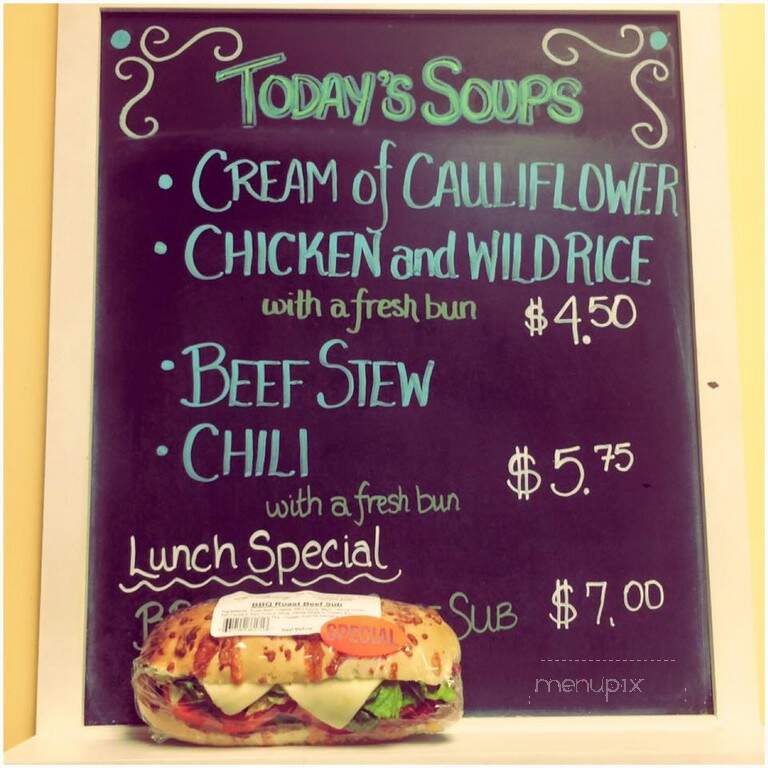 TODAY'S SOUPS
• CREAM of CAULIFLOWER
• CHICKEN and WILD RICE
with a fresh bun $4.50
• BEEF STEW
• CHILI
$5.75
with a fresh bun
Lunch Special
SUB $7.00
BBQ Roast Beef Sub
SPECIAL
menupix